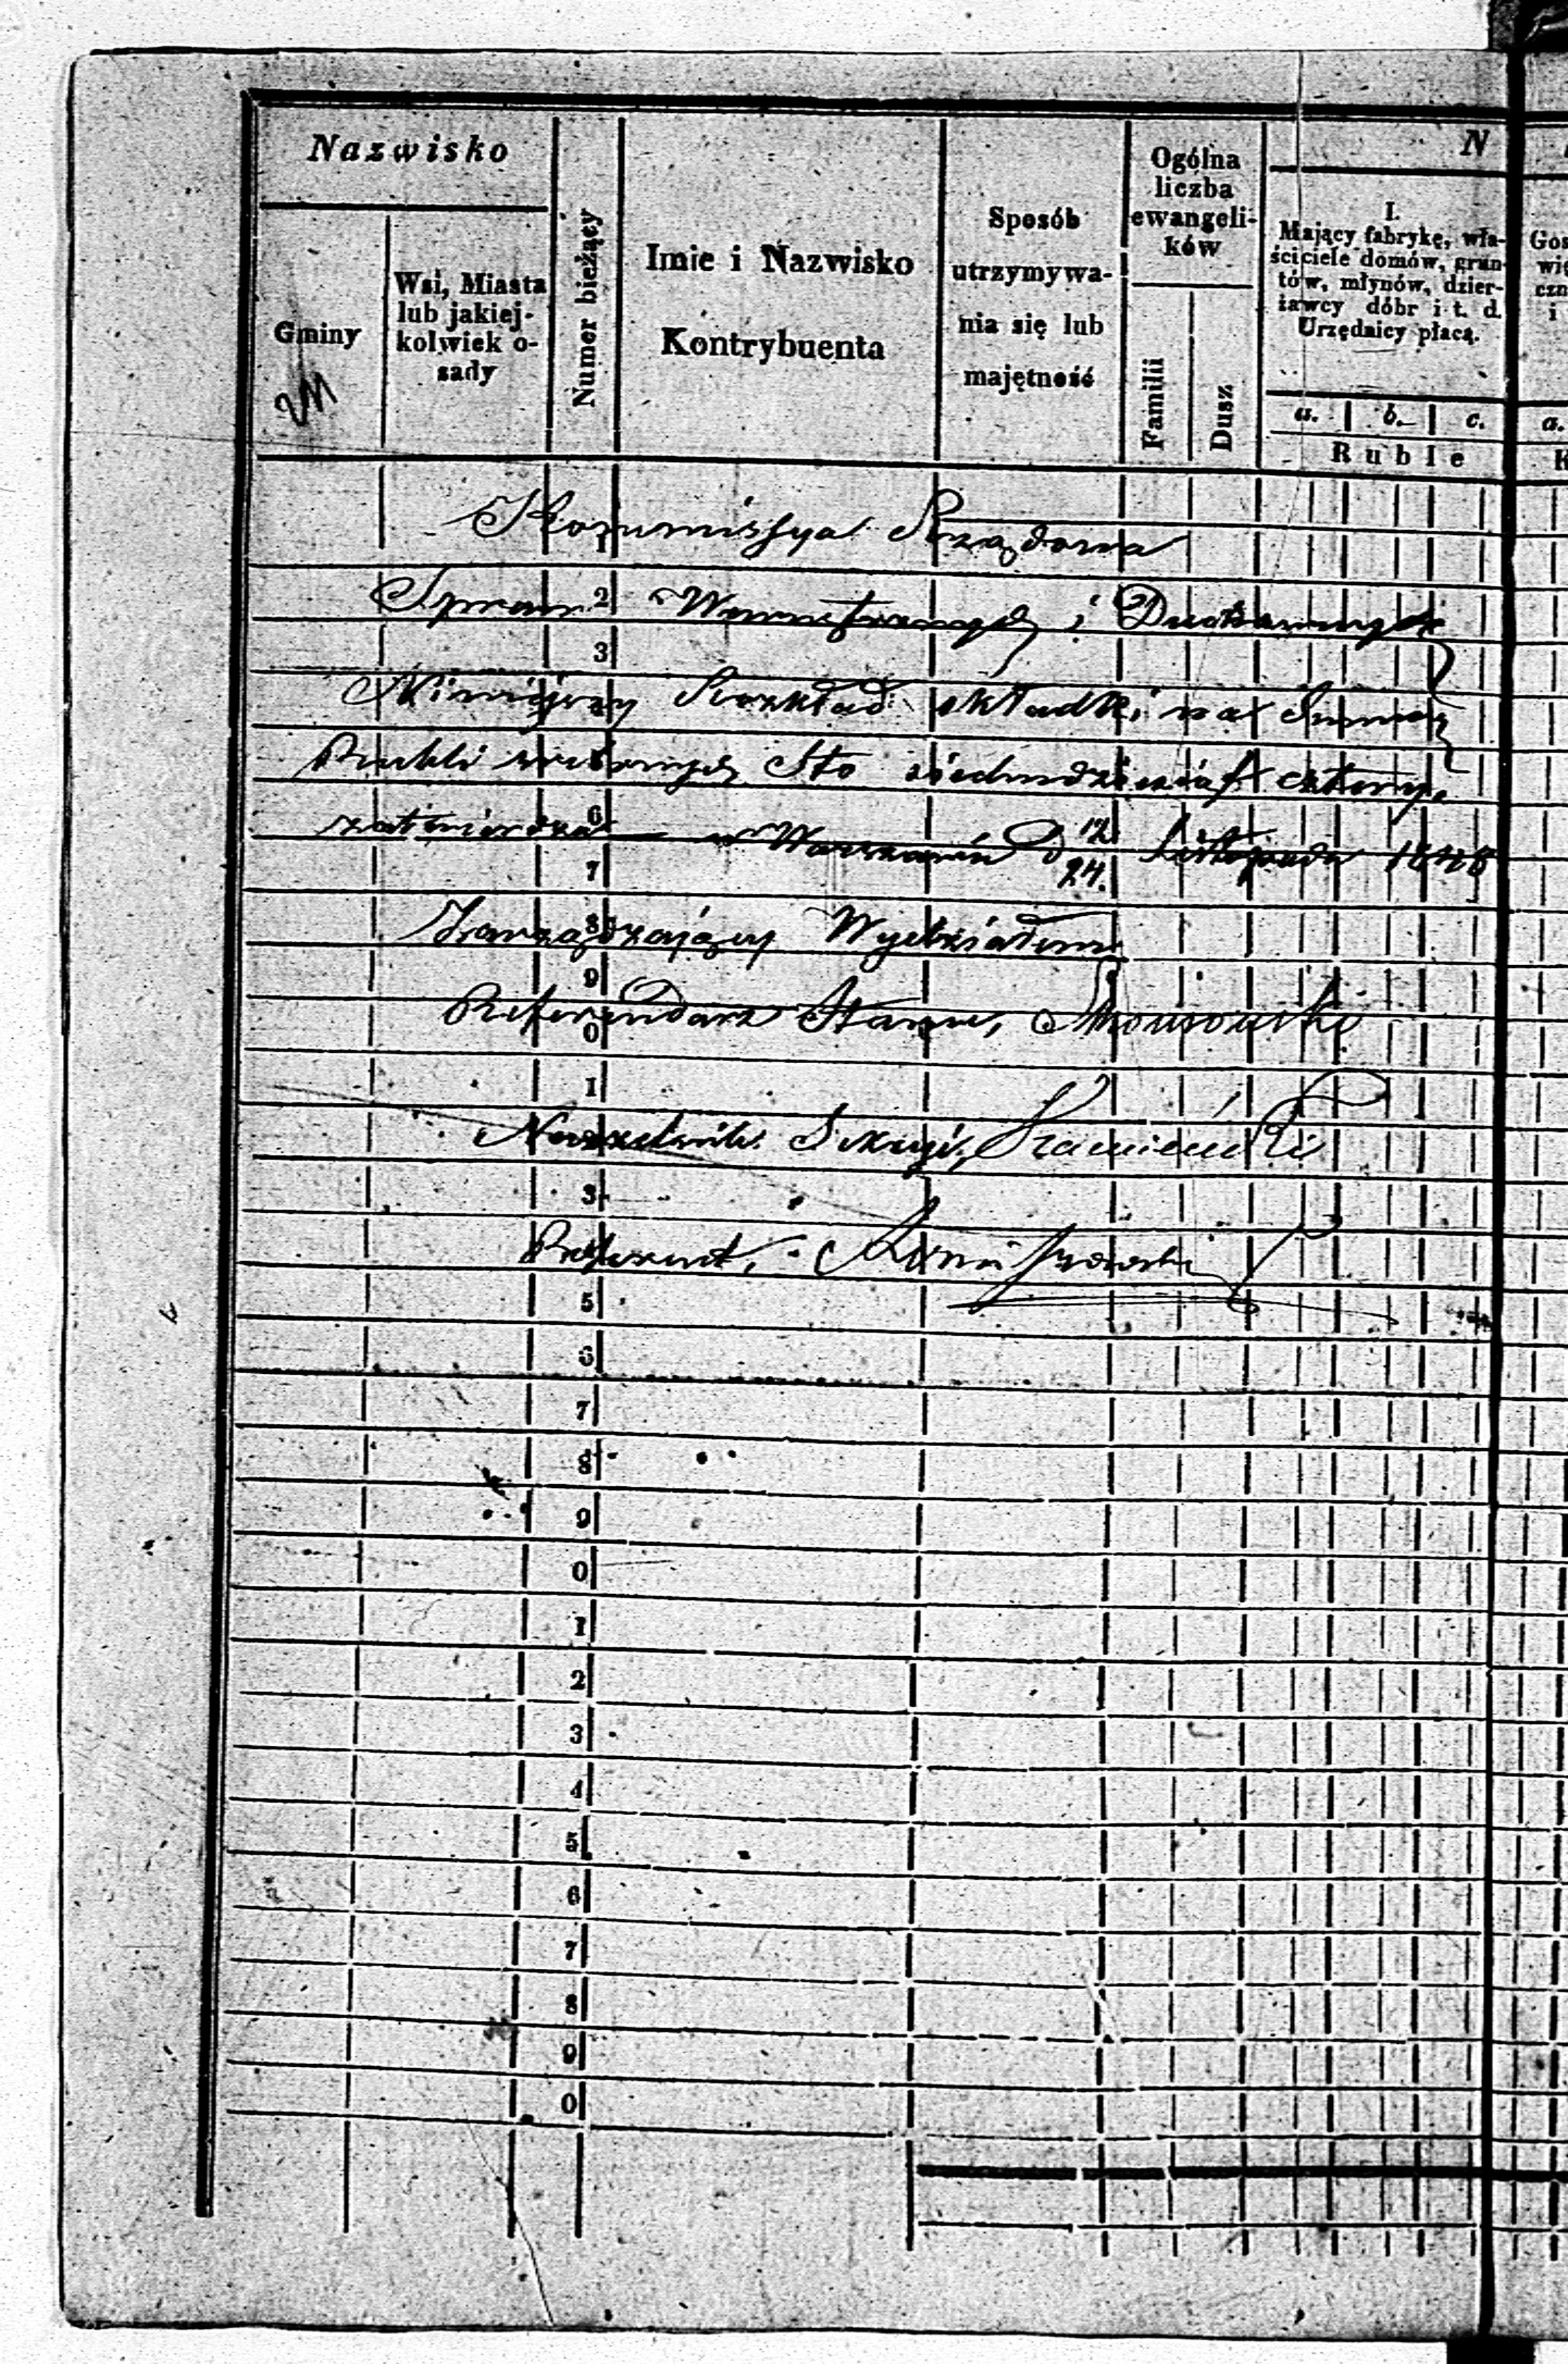 Nazwisko
Gminy
Wsi, Miasta
lub jakiej-
kolwiek o-
sady
Numer bieżący
Imie i Nazwisko
Kontrybuenta
Sposób
utrzymywa-
nia się lub
majętność
Ogólna
liczba
ewangeli-
ków
Familii
Dusz
N
I.
Mający fabrykę, wła-
ściciele domów, grun-
tów, młynów, dzier-
żawcy dóbr i t. d.
Urzędnicy płacą.
a. b. c.
Ruble
a.
Kommissya Rządowa
Spraw Wewnętrznych i Duchownych
Niniejszy Rozkład składki na Summę
Rubli srebrnych Sto siedmdziesiąt cztery
zatwierdza w Warszawie d 12/24. Listopada 1846
Zarządzający Wydziałem
Referendarz Stanu,
Naczelnik Sekcyi,
Referent,
1
2
3
6
7
8
9
0
1
3
5
6
7
8
9
0
1
2
3
4
5
6
7
8
9
0